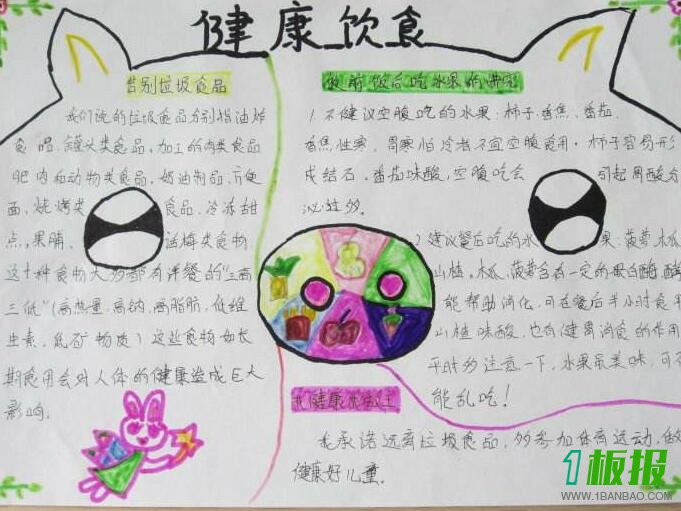 健康饮食
告别垃圾食品
我们说的垃圾食品分别指油炸
食品、罐头类食品，加工的肉类食品
肥肉和动物类食品，奶油制品，方便
面，烧烤类食品，冷冻甜
点，果脯、话梅类食物
这十种食物大多都有洋餐的“三高
三低”（高热量，高钠，高脂肪，低维
生素，低矿物质）这些食物如长
期食用会对人体的健康造成巨大
影响。
饭前饭后吃水果的讲究
1. 不健议空腹吃的水果：柿子香焦、番茄
香焦性寒，胃寒怕冷者不宜空腹食用，柿子容易形
成结石，番茄味酸，空腹吃会引起胃酸分
泌过多。
2. 建议餐后吃的水果：菠萝木瓜
山楂，木瓜、菠萝含有一定的蛋白酶，酶
能帮助消化，可在餐后半小时食用
山楂味酸，也有健胃消食的作用
平时多注意一下，水果虽美味，可不
能乱吃！
健康
我承诺远离垃圾食品，多参加体育运动，做
健康好儿童。
1板报
WWW.1BANBAO.COM